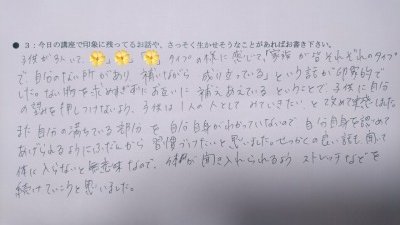 ● 3：今日の講座で印象に残ってるお話や、さっそく生かせそうなことがあればお書き下さい。
子供が3人いて、タイプの様に感じて、「家族が皆それぞれのタイプ
で自分のない所があり補いながら成り立っている」という話が印象的で
した。ない物を求めすぎずにお互いに補えあえるということで、子供に自分
の望みを押しつけないよう、子供は1人の人としてみていきたい、と改めて実感した。
また自分の満ちている部分を自分自身がわかっていないので自分自身を認めて
あげられるようにふだんから習慣づけたいと思いました。せっかくの良い話も聞いて
体に入らないと無意味なので、体が聞き入れられるようストレッチなどを
続けていこうと思いました。